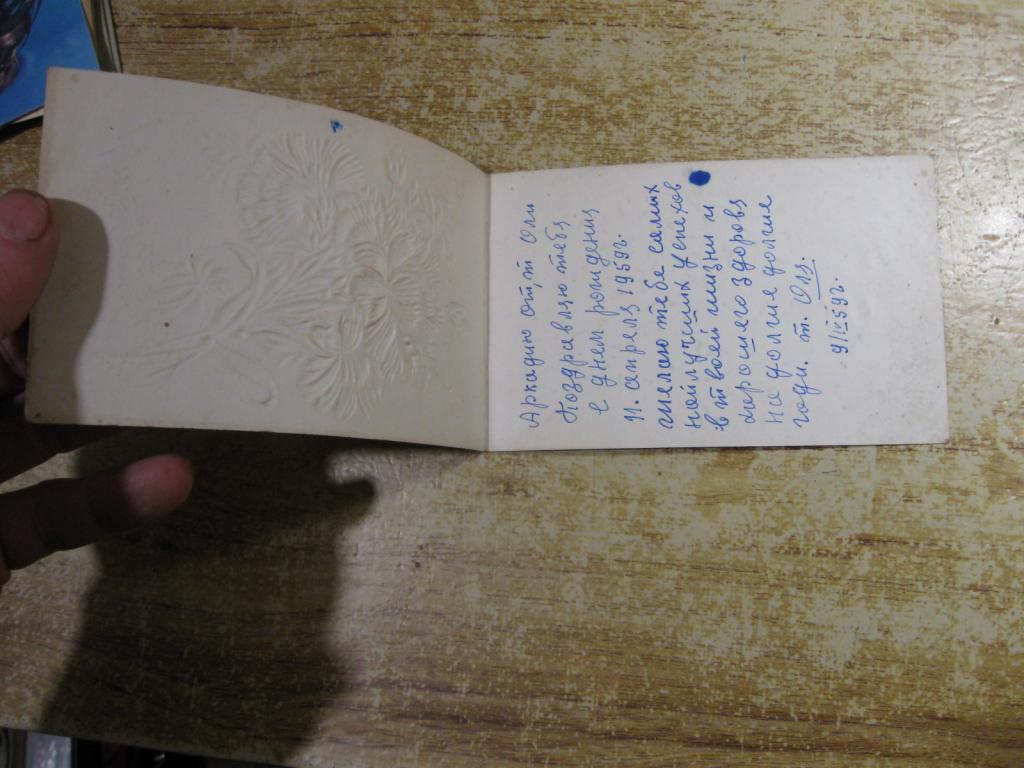 Аркадию от, т Оли
Поздравляю тебя
с днем рождения
11. апреля 1959г.
желаю тебе самых
найлучших успехов
в твоей жизни и
хорошего здоровя
на долгие долгие
годи. т. Оля.
9/IV 59г.